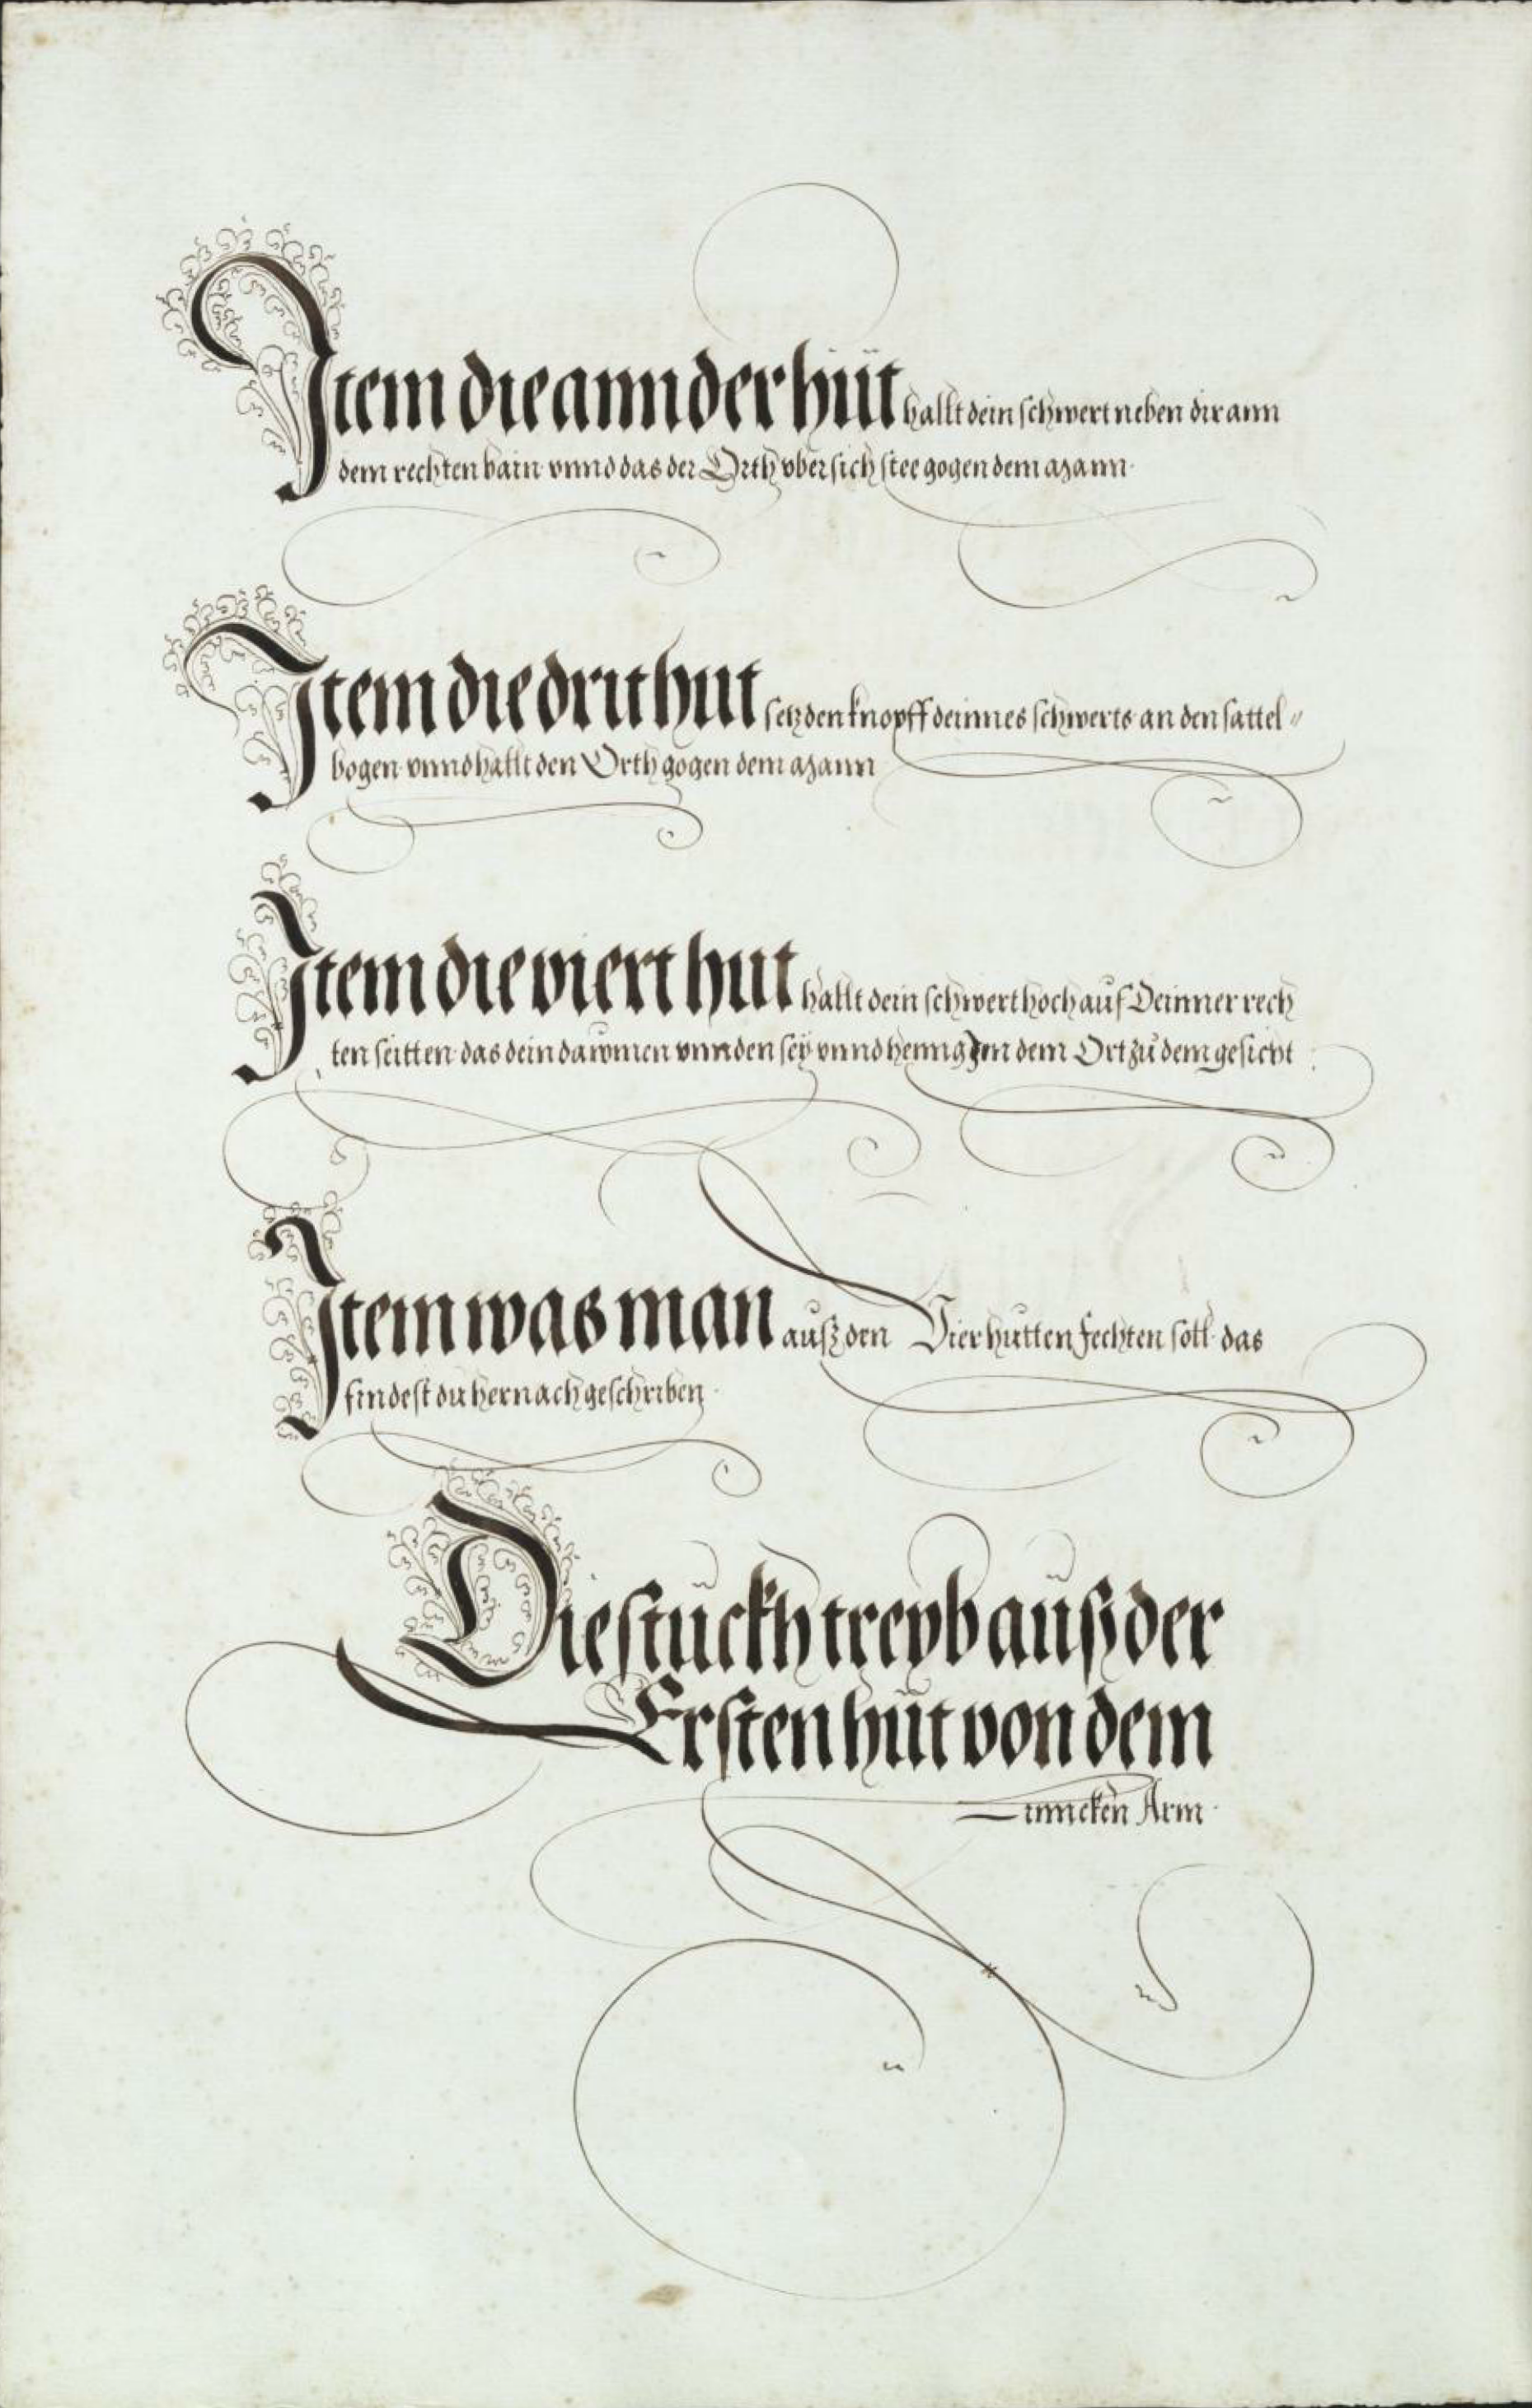 Item die annder hüt hallt dein schwert neben dir ann
dem rechten bain vnnd das der Orth vber sich stee gogen dem Mann
Item die drit hut setz den knopff deinnes schwerts an den sattel〃
bogen vnnd hallt den Orth gogen dem Mann
Item die viert hut hallt dein schwert hoch auf Deinner rech
ten seitten das dein dawmen vnnden sey vnnd henng Im dem Ort zu dem gesicht
Item was man außz den Vier hutten fechten soll das
findest du hernach geschriben
Die stückh treyb außz der
Ersten hüt von dem
Linncken Arm